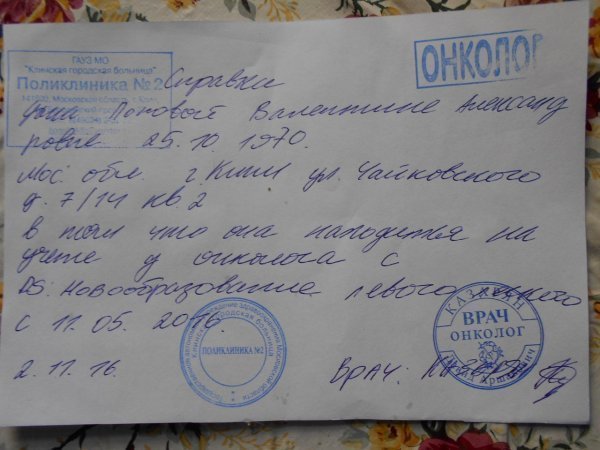 ГАУЗ МО
"Клинская городская больница"
Поликлиника №2
ОНКОЛОГ
Справка
дана Поповой Валентине Александ
ровне 25.10.1970.
Мос. обл. г. Клин ул. Чайковского
д. 7/14 кв 2
в том что она находится на
учете у онколога с
DS: Новообразование левого
с 11.05.2016.
2.11.16. Врач:
ПОЛИКЛИНИКА №2
ВРАЧ
ОНКОЛОГ